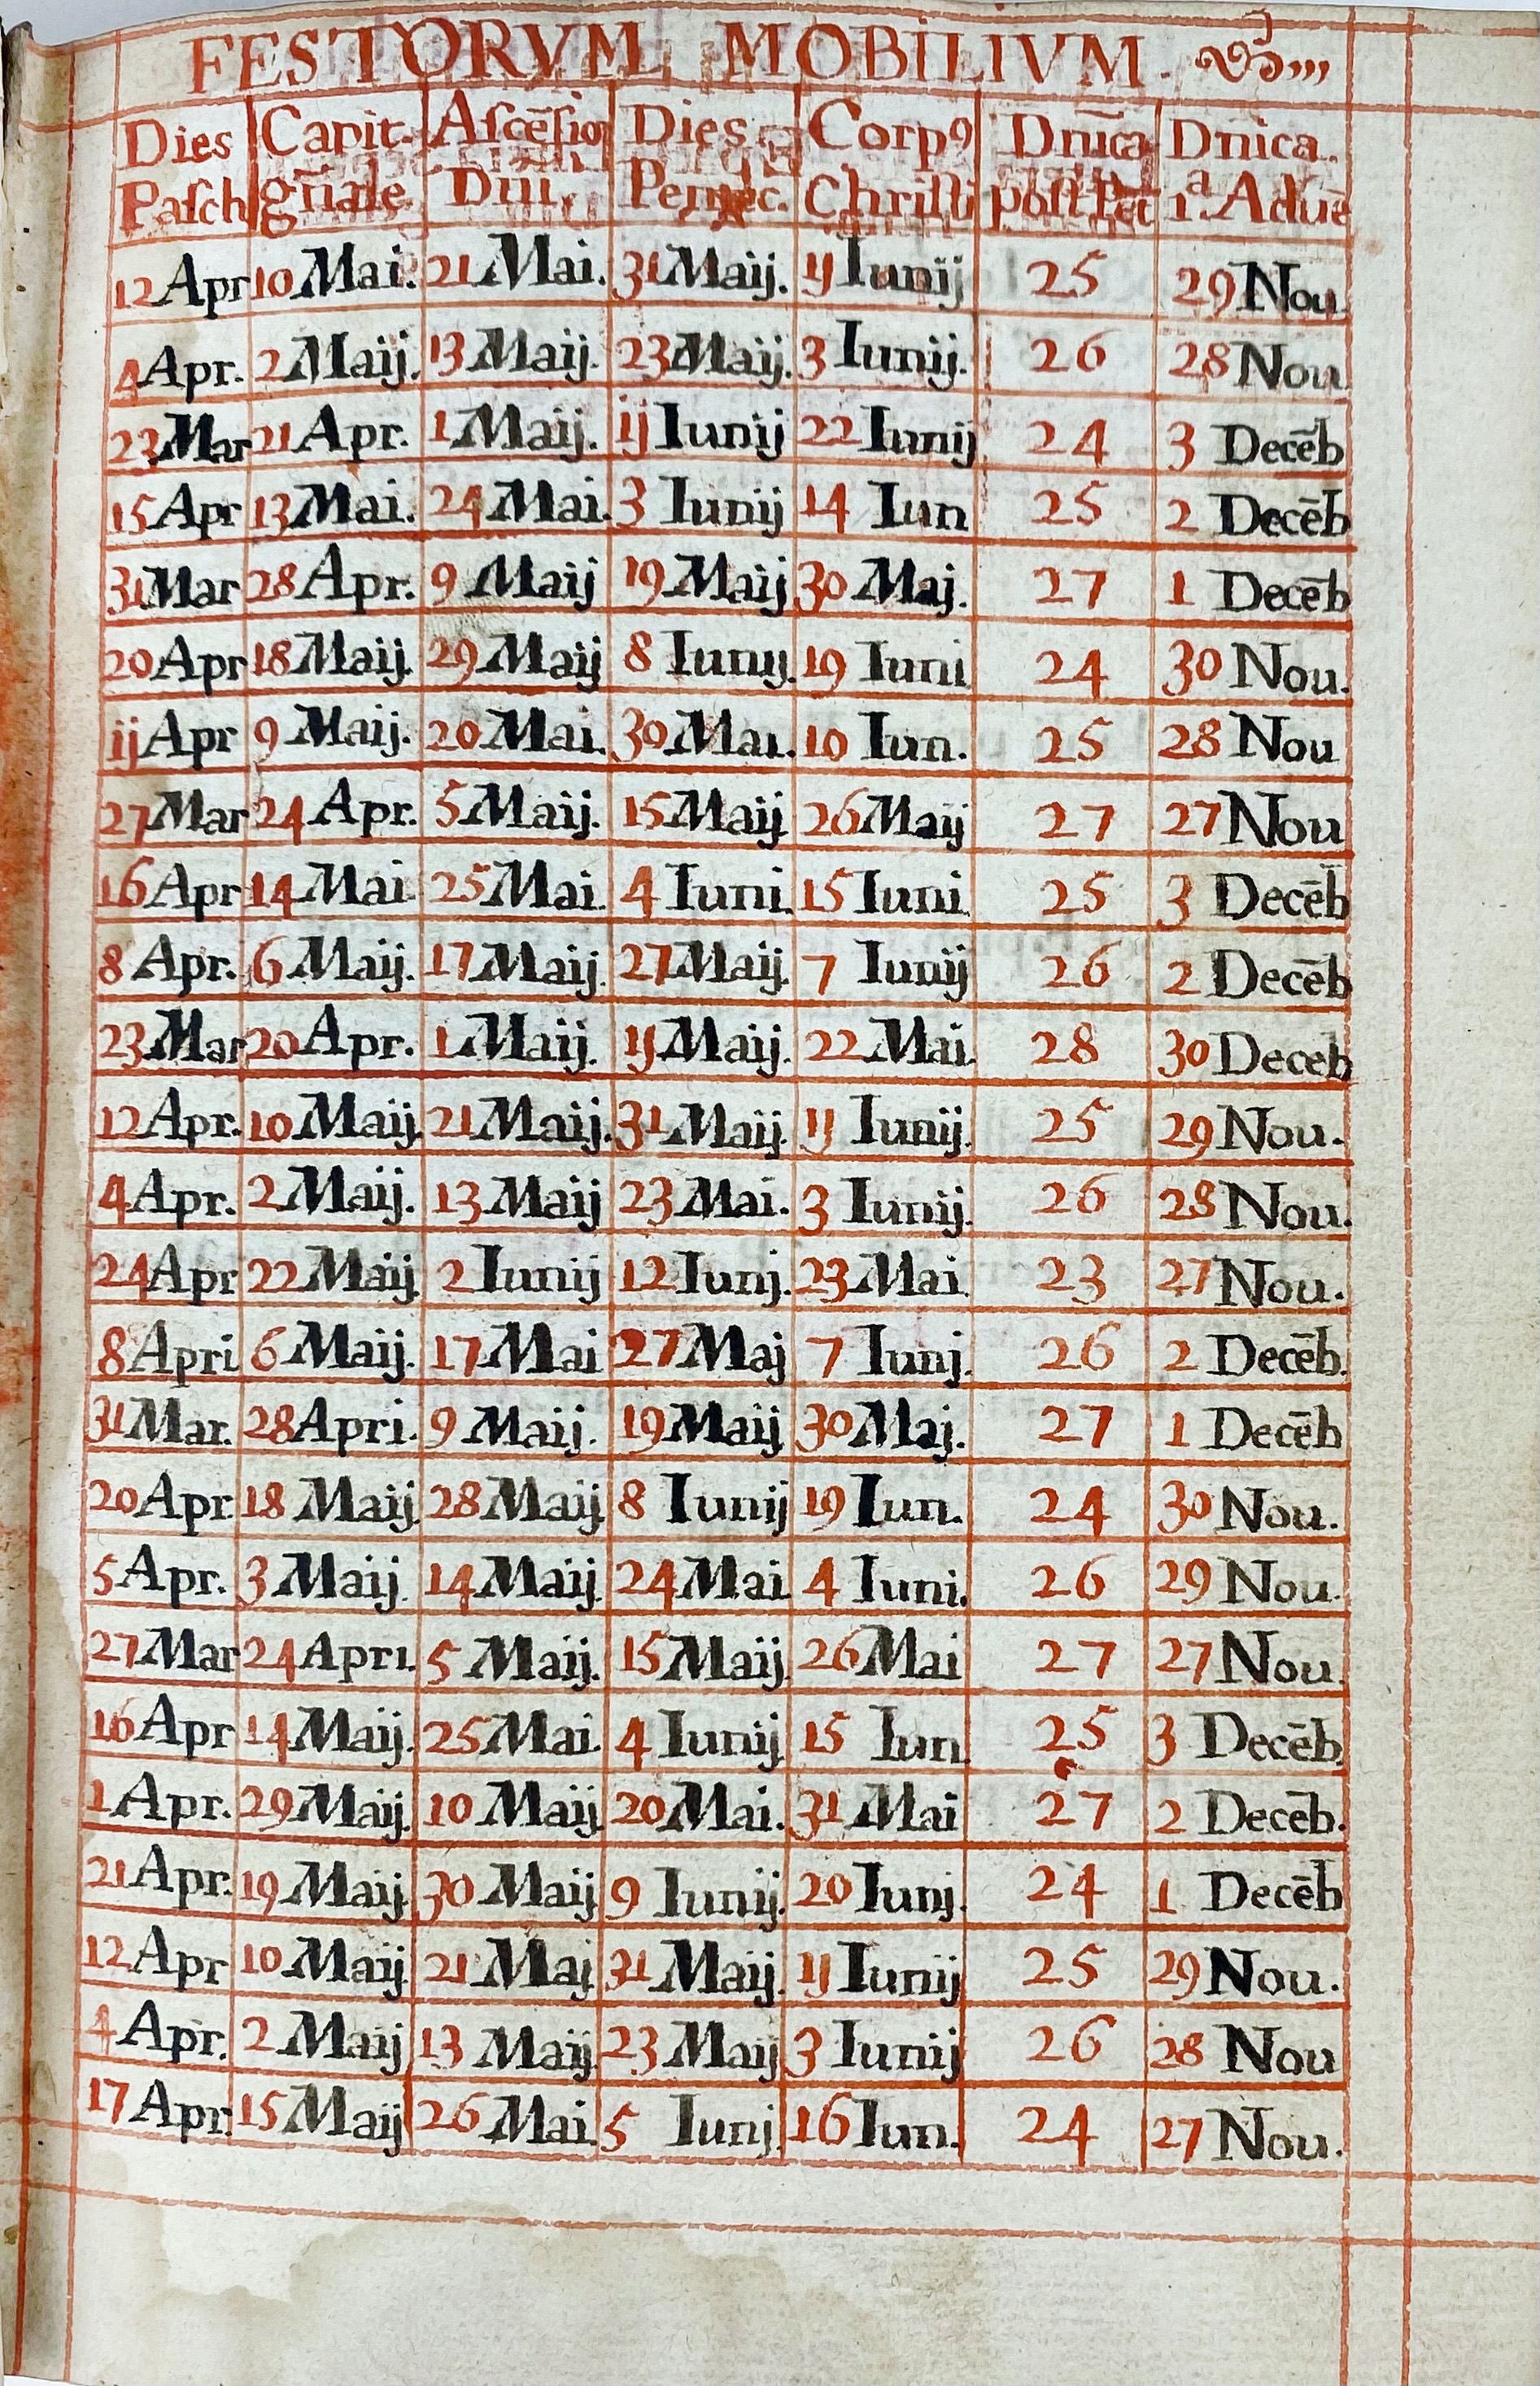 FESTORVM MOBILIVM.
Dies Pasch | Capit. gñale | Ascẽsio Dni. | Dies Pentec. | Corp⁹ Christi | Dnĩca post Pẽt | Dnica. 1.ª Aduẽ
12 Apr 10 Mai. 21 Mai. 31 Maij. ij Iunij 25 29 Nou
4 Apr. 2 Maij. 13 Maij. 23 Maij. 3 Iunij. 26 28 Nou
23 Mar 21 Apr. 1 Maij. ij Iunij 22 Iunij 24 3 Decẽb
15 Apr 13 Mai. 24 Mai. 3 Iunij 14 Iun 25 2 Decẽb
31 Mar 28 Apr. 9 Maij 19 Maij 30 Maj. 27 1 Decẽb
20 Apr 18 Maij. 29 Maij 8 Iunij. 19 Iuni 24 30 Nou.
ij Apr 9 Maij. 20 Mai. 30 Mai. 10 Iun. 25 28 Nou
27 Mar 24 Apr. 5 Maij. 15 Maij 26 Maij 27 27 Nou
16 Apr 14 Mai 25 Mai. 4 Iuni. 15 Iuni 25 3 Decẽb
8 Apr. 6 Maij. 17 Maij. 27 Maij. 7 Iunij 26 2 Decẽb
23 Mar 20 Apr. 1 Maij. ij Maij. 22 Mai. 28 30 Deceb
12 Apr. 10 Maij. 21 Maij. 31 Maij. ij Iunij. 25 29 Nou.
4 Apr. 2 Maij. 13 Maij 23 Mai. 3 Iunij. 26 28 Nou.
24 Apr 22 Maij 2 Iunij 12 Iunj. 23 Mai 23 27 Nou.
8 Apri 6 Maij. 17 Mai 27 Maj 7 Iunj. 26 2 Decẽb.
31 Mar. 28 Apri. 9 Maij. 19 Maij 30 Maj. 27 1 Decẽb
20 Apr. 18 Maij 28 Maij 8 Iunij 19 Iun. 24 30 Nou.
5 Apr. 3 Maij. 14 Maij. 24 Mai 4 Iuni. 26 29 Nou.
27 Mar 24 Apri. 5 Maij. 15 Maij. 26 Mai 27 27 Nou.
16 Apr 14 Maij. 25 Mai. 4 Iunij 15 Iun 25 3 Decẽb.
1 Apr. 29 Maij. 10 Maij 20 Mai. 31 Mai 27 2 Decẽb.
21 Apr. 19 Maij 30 Maij 9 Iunij. 20 Iunj. 24 1 Decẽb
12 Apr 10 Maij. 21 Maj 31 Maij. ij Iunij 25 29 Nou.
4 Apr. 2 Maij 13 Maij. 23 Maij 3 Iunij 26 28 Nou
17 Apr. 15 Maij 26 Mai. 5 Iunj. 16 Iun. 24 27 Nou.